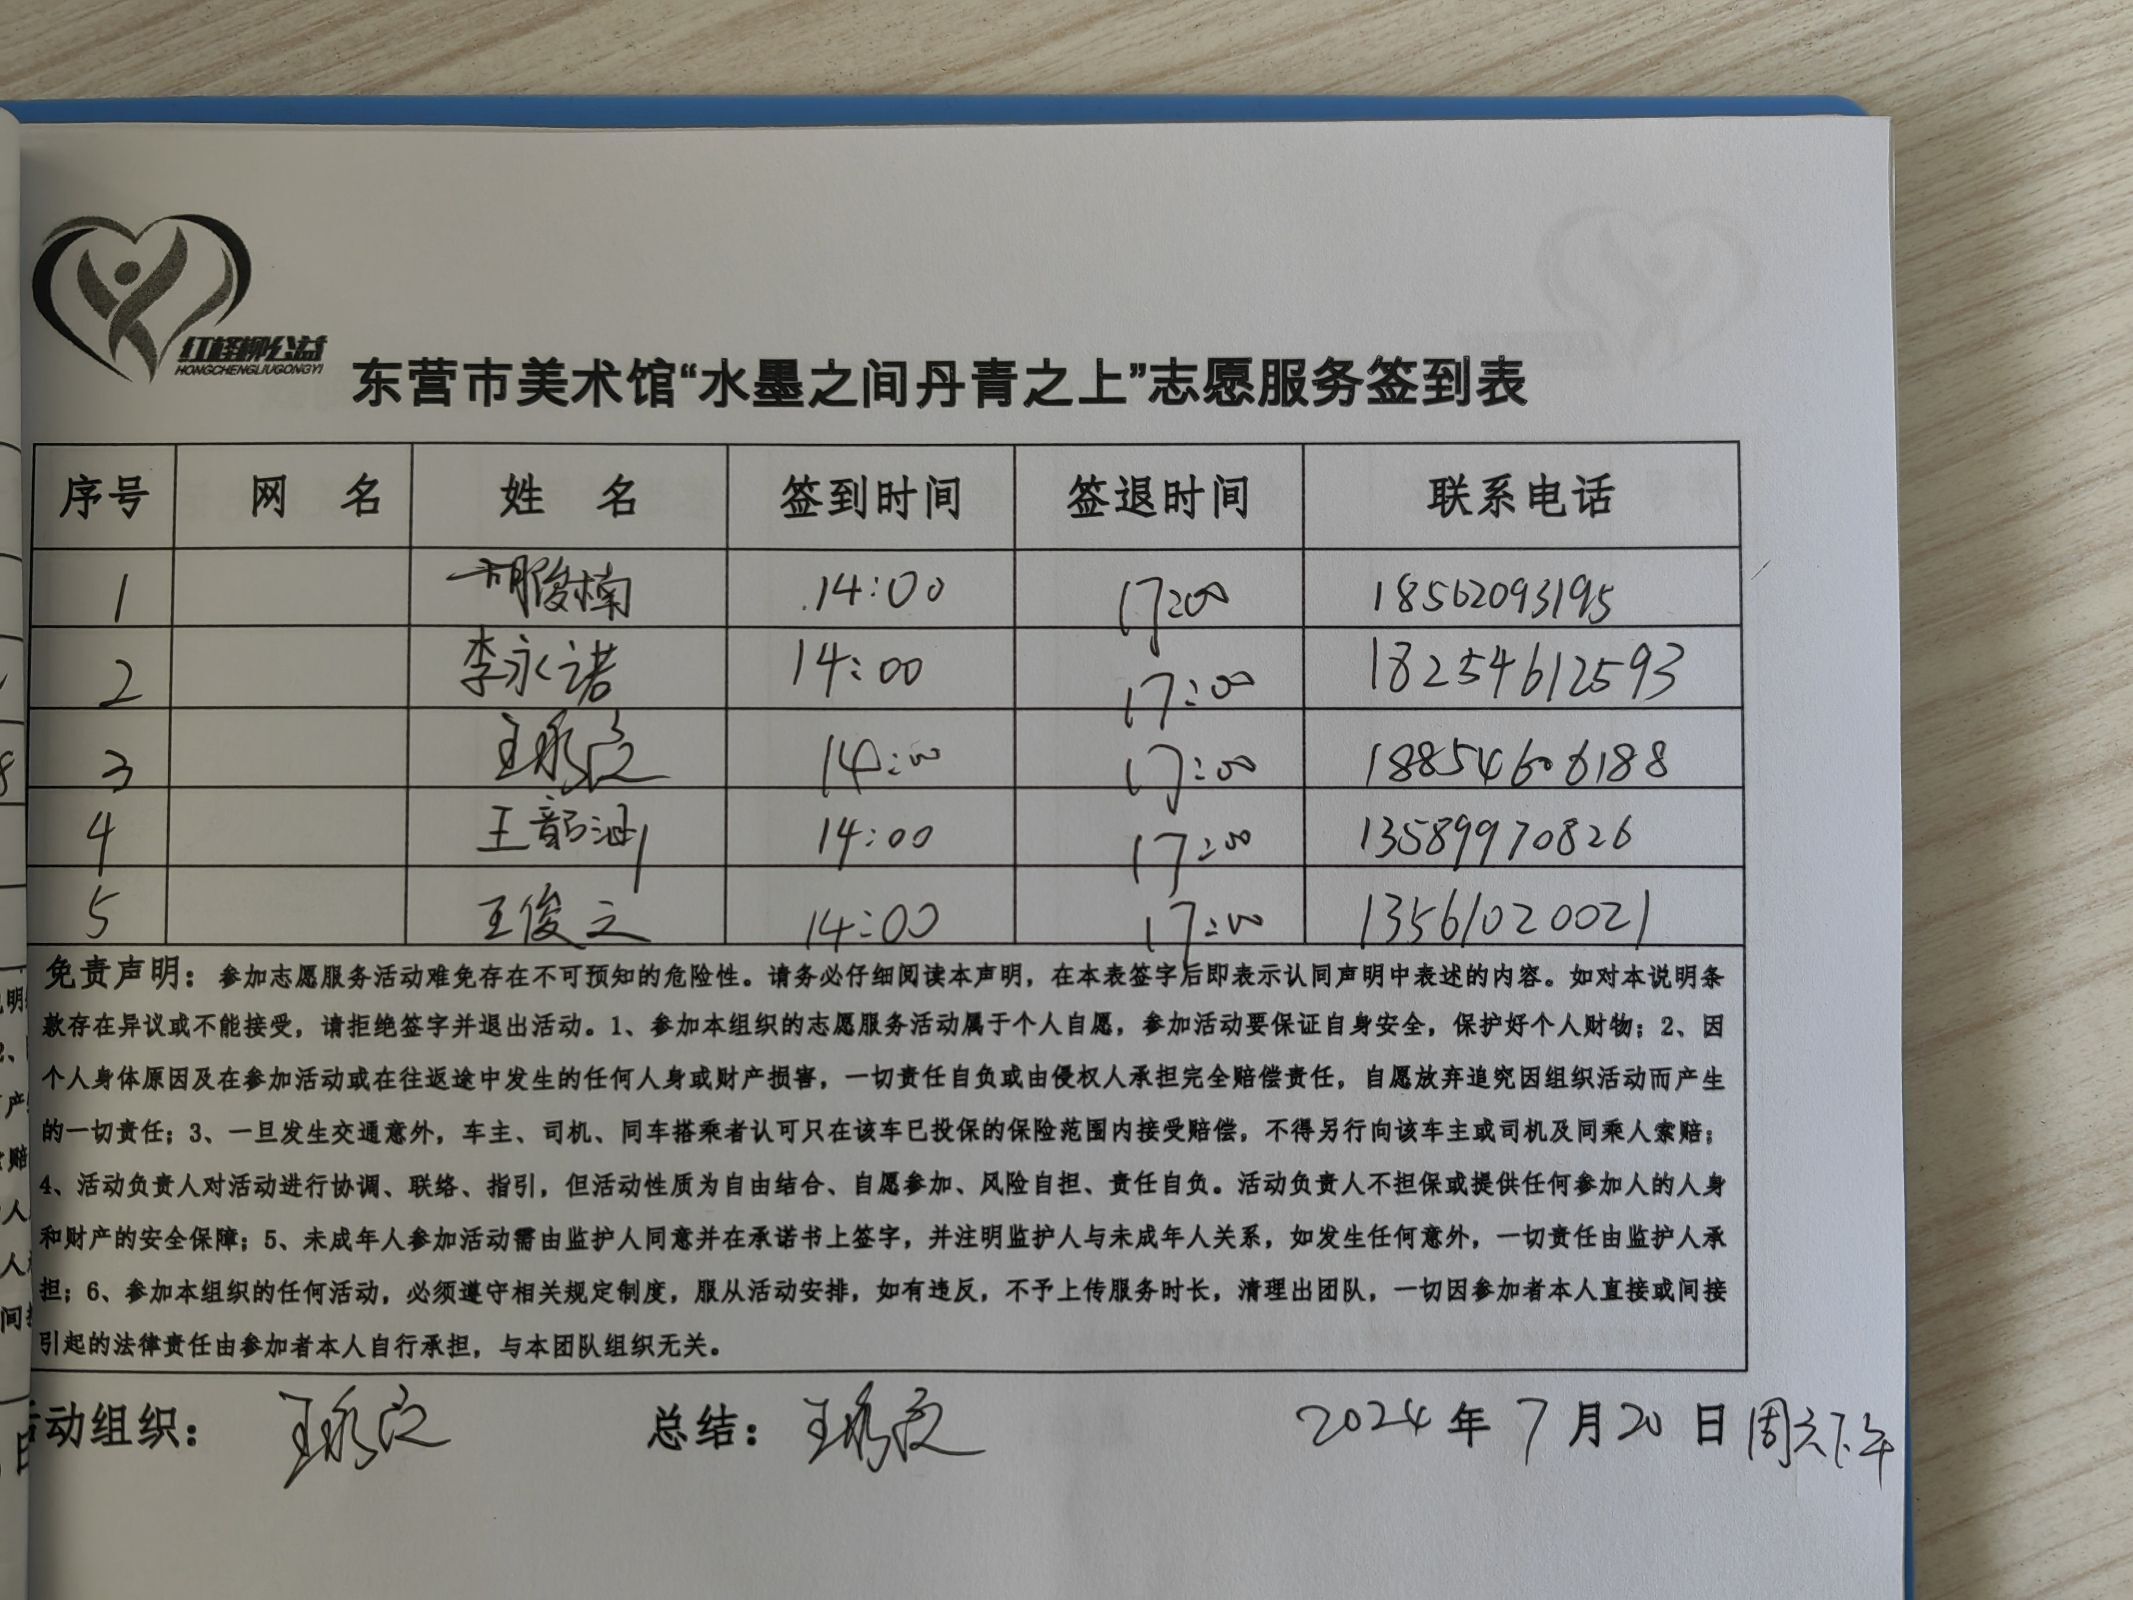 红柽柳公益
HONGCHENGLIUGONGYI
东营市美术馆“水墨之间丹青之上”志愿服务签到表
序号 网 名 姓 名 签到时间 签退时间 联系电话
1 胡俊楠 14:00 17:00 18562093195
2 李永诺 14:00 17:00 18254612593
3 14:00 17:00 18854606188
4 王韵涵 14:00 17:00 13589970826
5 王俊之 14:00 17:00 13561020021
免责声明：参加志愿服务活动难免存在不可预知的危险性。请务必仔细阅读本声明，在本表签字后即表示认同声明中表述的内容。如对本说明条
款存在异议或不能接受，请拒绝签字并退出活动。1、参加本组织的志愿服务活动属于个人自愿，参加活动要保证自身安全，保护好个人财物；2、因
个人身体原因及在参加活动或在往返途中发生的任何人身或财产损害，一切责任自负或由侵权人承担完全赔偿责任，自愿放弃追究因组织活动而产生
的一切责任；3、一旦发生交通意外，车主、司机、同车搭乘者认可只在该车已投保的保险范围内接受赔偿，不得另行向该车主或司机及同乘人索赔；
4、活动负责人对活动进行协调、联络、指引，但活动性质为自由结合、自愿参加、风险自担、责任自负。活动负责人不担保或提供任何参加人的人身
和财产的安全保障；5、未成年人参加活动需由监护人同意并在承诺书上签字，并注明监护人与未成年人关系，如发生任何意外，一切责任由监护人承
担；6、参加本组织的任何活动，必须遵守相关规定制度，服从活动安排，如有违反，不予上传服务时长，清理出团队，一切因参加者本人直接或间接
引起的法律责任由参加者本人自行承担，与本团队组织无关。
活动组织： 总结： 2024年7月20日周六下午